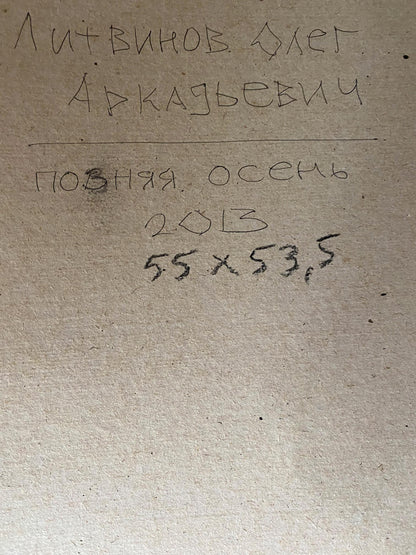 Литвинов Олег
Аркадьевич
позняя осень
2013
55 x 53,5